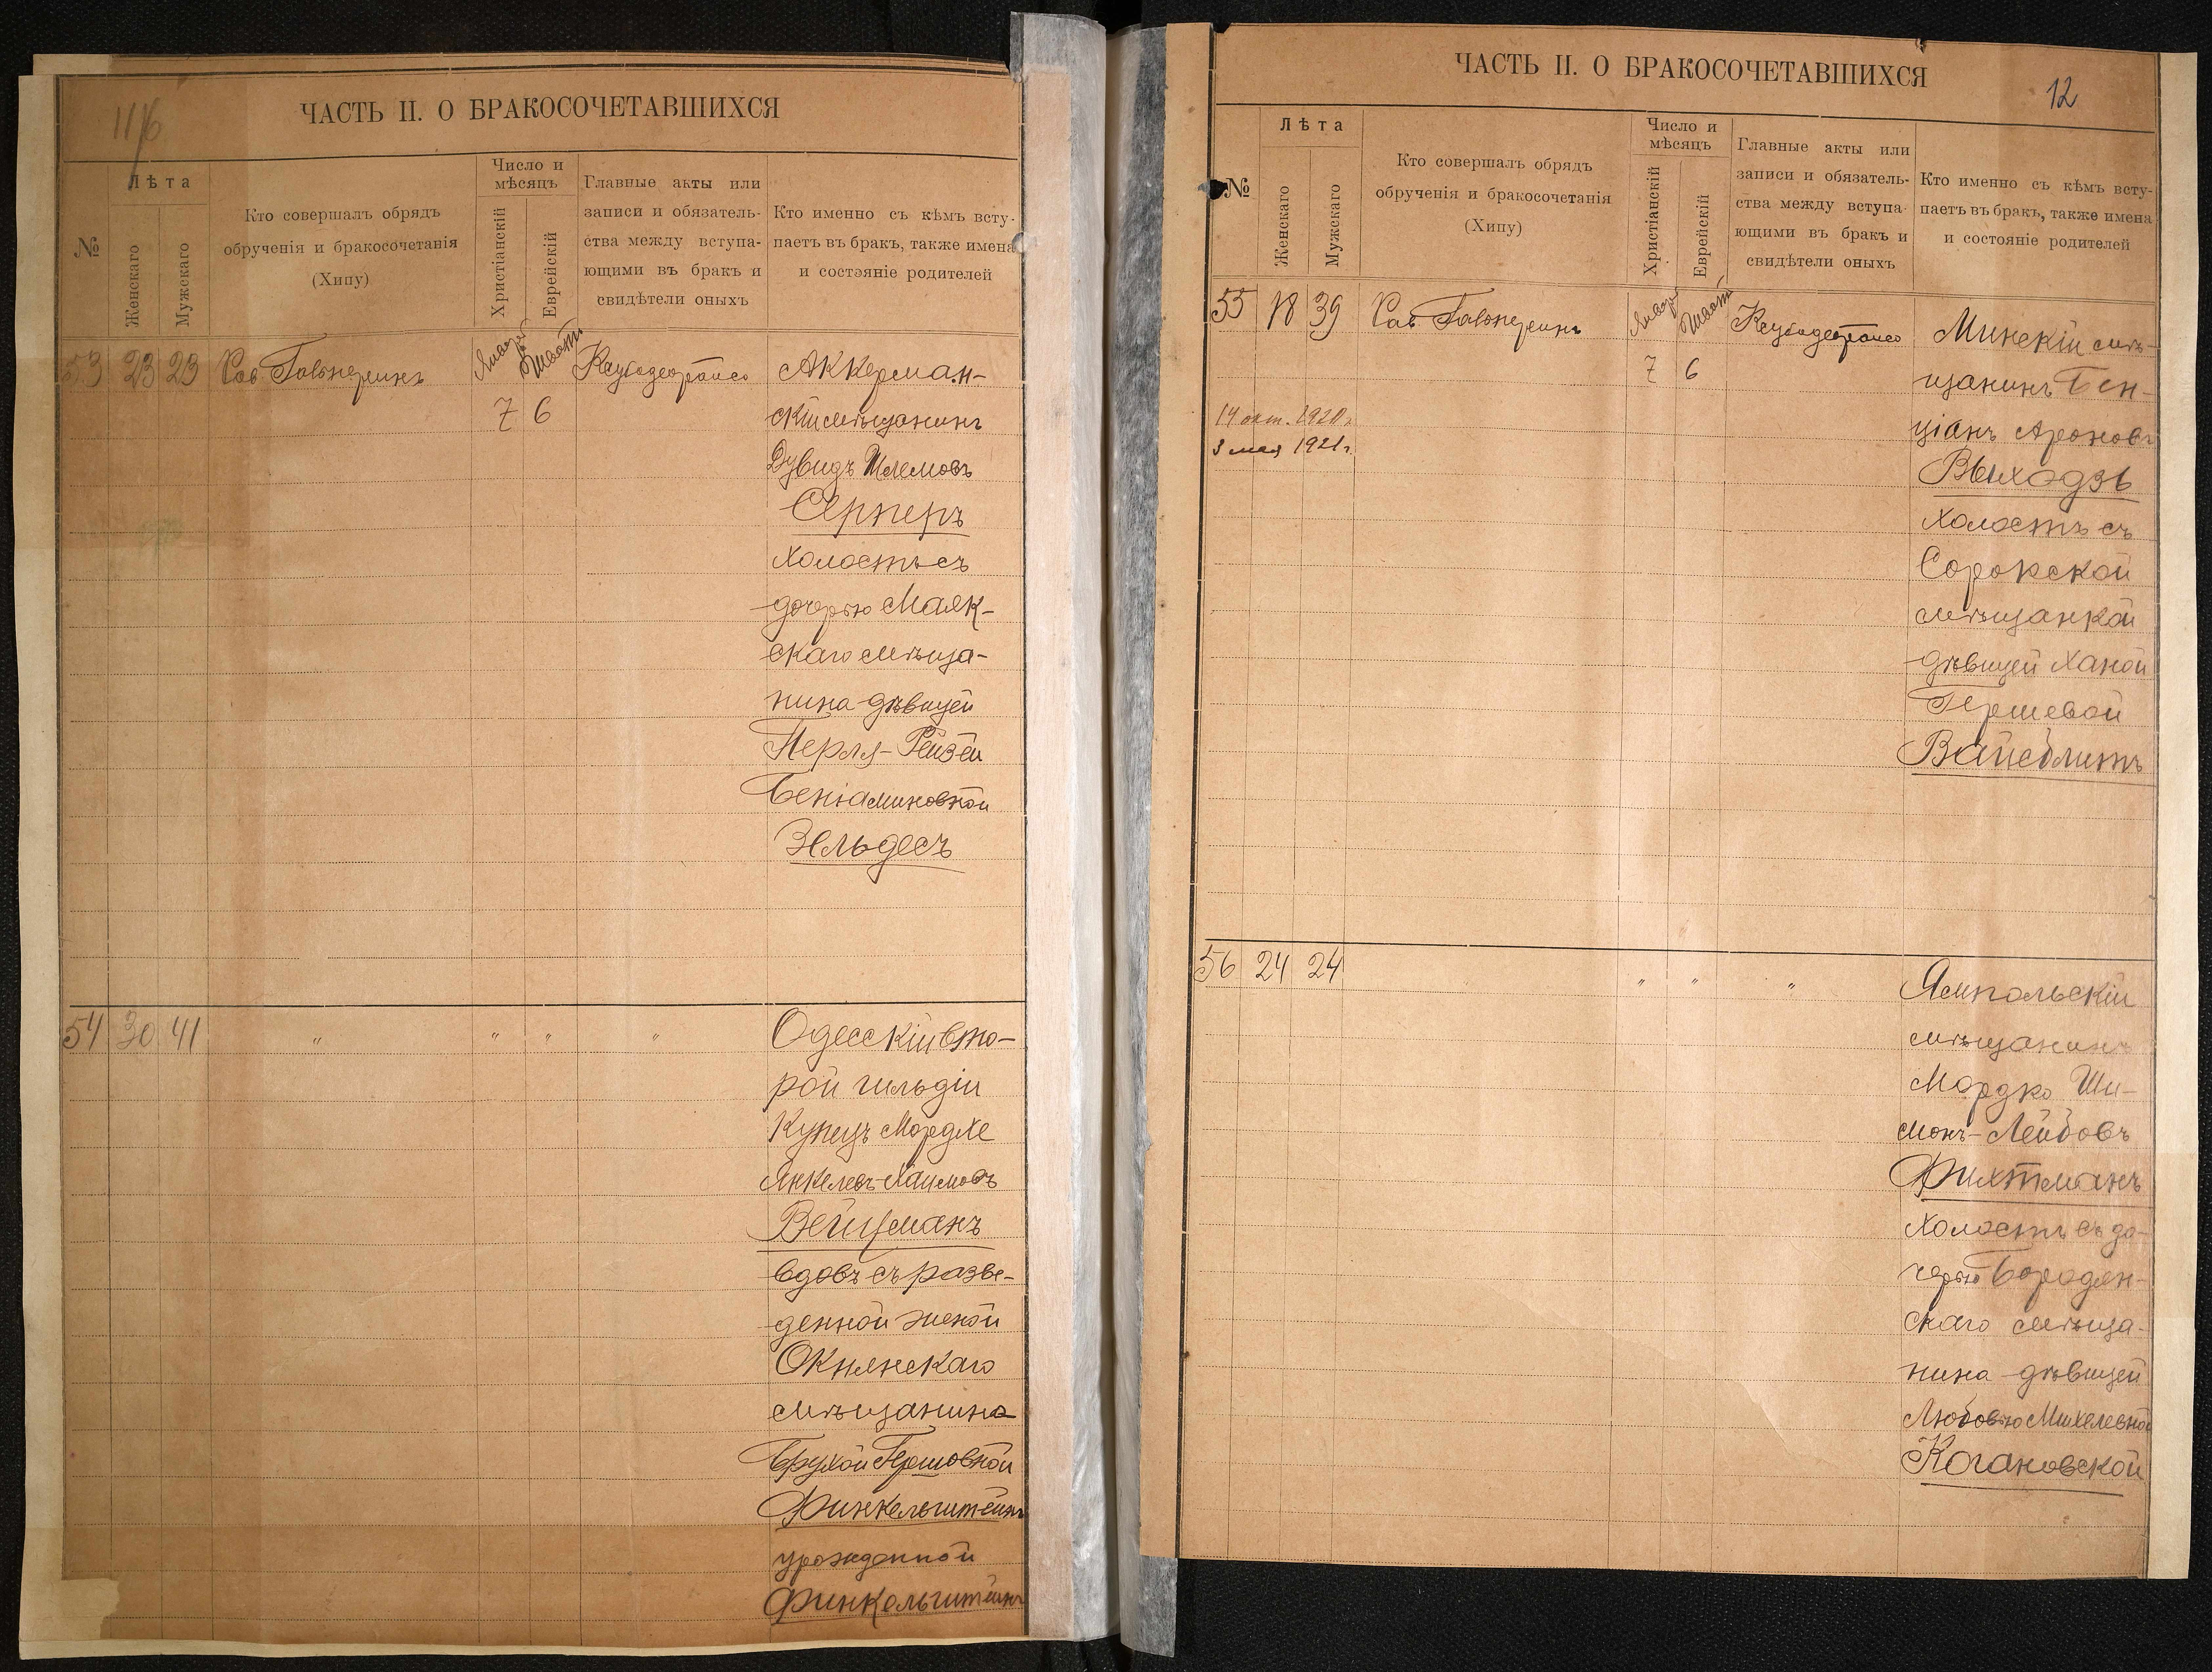 11/б
ЧАСТЬ II. О БРАКОСОЧЕТАВШИХСЯ
№
Лѣта
Женскаго
Мужскаго
Кто совершалъ обрядъ
обрученія и бракосочетанія
(Хипу)
Число и
мѣсяцъ
Христіанскій
Еврейскій
Главные акты или
записи и обязатель-
ства между вступа-
ющими въ бракъ и
свидѣтели оныхъ
Кто именно съ кѣмъ всту-
паетъ въ бракъ, также имена
и состояніе родителей
53 23 23 Рав. Гальперинъ Январ. Шватъ 7 6
Аккерман-
скій мѣщанинъ
Дувидъ Шлемовъ
Серперъ
холостъ съ
дочерью Маяк-
скаго мѣща-
нина дѣвицей
Перля-Рейзей
Беніаминовной
Зельдесъ
54 30 41 " " " "
Одесскій вто-
рой гильдіи
Купецъ Мордхе
Янкелевъ-Хаимовъ
Вейцманъ
вдовъ съ разве-
денной женой
Окнянскаго
мѣщанина
Брухой Гершовной
Финкельштейнъ
урожденной
Финкельштейнъ
ЧАСТЬ II. О БРАКОСОЧЕТАВШИХСЯ
12
№
Лѣта
Женскаго
Мужскаго
Кто совершалъ обрядъ
обрученія и бракосочетанія
(Хипу)
Число и
мѣсяцъ
Христіанскій
Еврейскій
Главные акты или
записи и обязатель-
ства между вступа-
ющими въ бракъ и
свидѣтели оныхъ
Кто именно съ кѣмъ всту-
паетъ въ бракъ, также имена
и состояніе родителей
55 18 39 Рав. Гальперинъ Январ. Шватъ 7 6
14 окт. 1920 г.
3 мая 1921 г.
Минскій мѣ-
щанинъ Бен-
ціанъ Ароновъ
Выходзь
холостъ съ
Сорокской
мѣщанкой
дѣвицей Ханой
Гершевой
Вайсблитъ
56 24 24 " " "
Ямпольскій
мѣщанинъ
Мордко Ши-
монъ-Лейбовъ
Фихтманъ
холостъ съ до-
черью Бородян-
скаго мѣща-
нина дѣвицей
Любовью Михелевной
Когановской